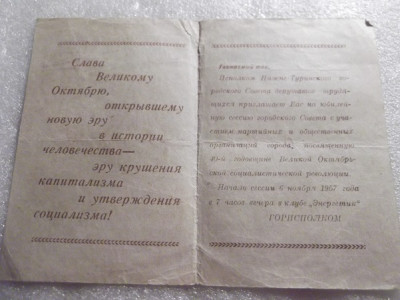 Слава
Великому
Октябрю,
открывшему
новую эру
в истории
человечества—
эру крушения
капитализма
и утверждения
социализма!
Уважаемый тов.
Исполком Нижне-Туринского го-
родского Совета депутатов трудя-
щихся приглашает Вас на юбилей-
ную сессию городского Совета с уча-
стием партийных и обществен-
ных организаций города, посвященную
летию годовщине Великой Октябрь-
ской социалистической революции.
Начало сессии 6 ноября 1967 года
в 7 часов вечера в клубе „Энергетик"
ГОРИСПОЛКОМ